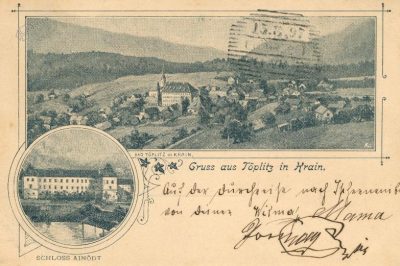 13.5.97
BAD TÖPLITZ in KRAIN.
Gruss aus Töplitz in Krain.
Auf der Durchreise nach Tschernembl
von deiner Wilma Mama
SCHLOSS AINÖDT